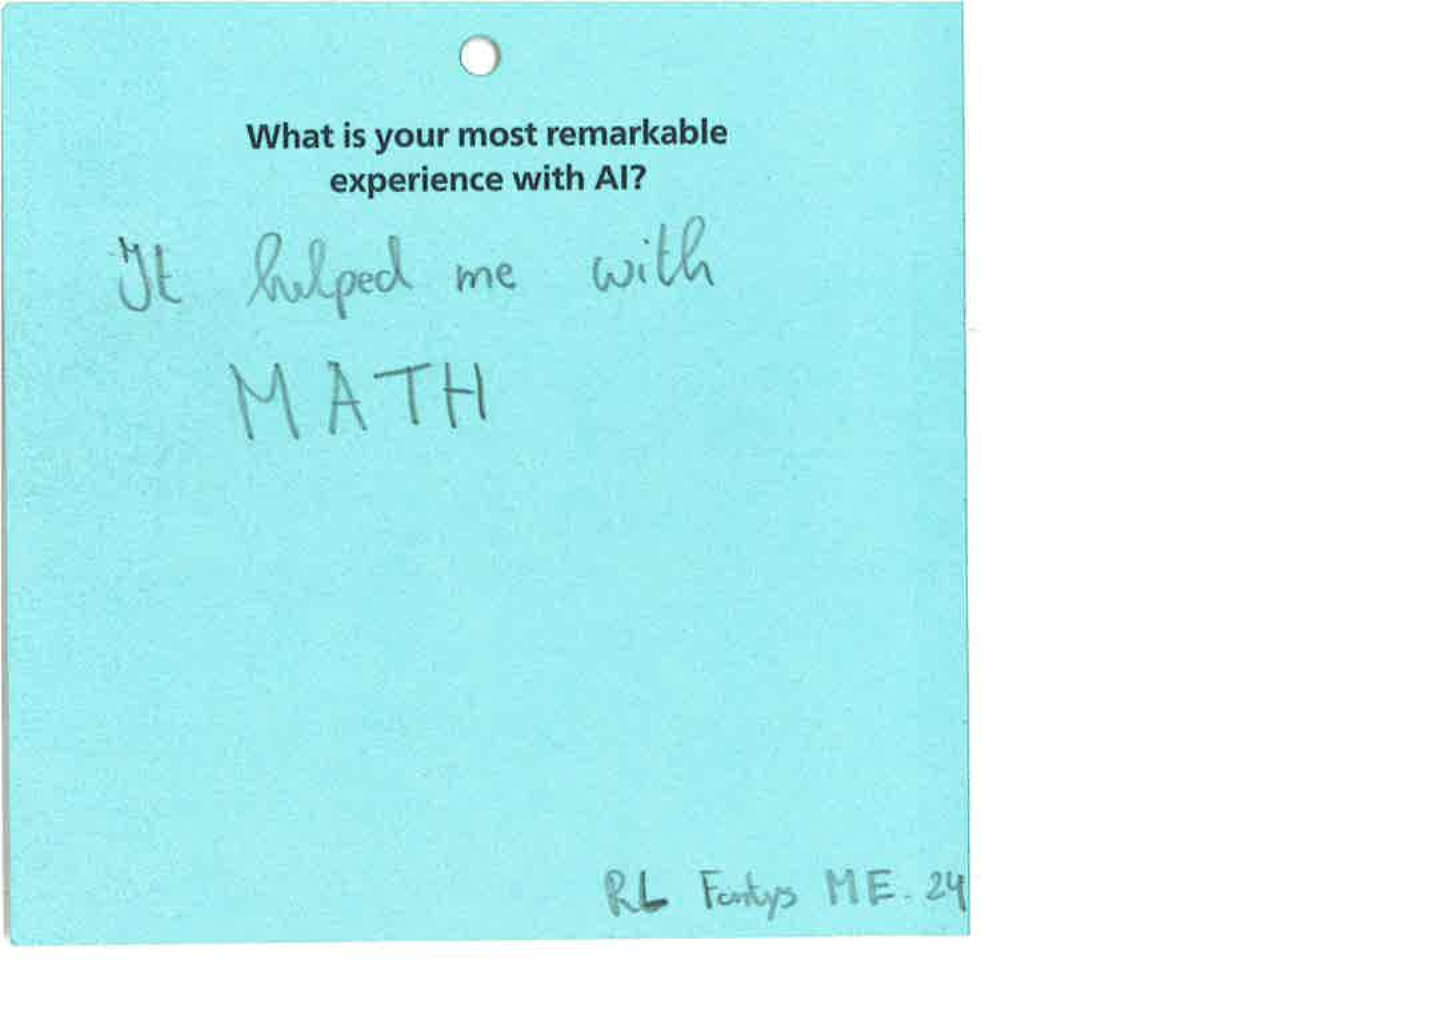 What is your most remarkable
experience with AI?
It helped me with
MATH
RL Fontys ME-24